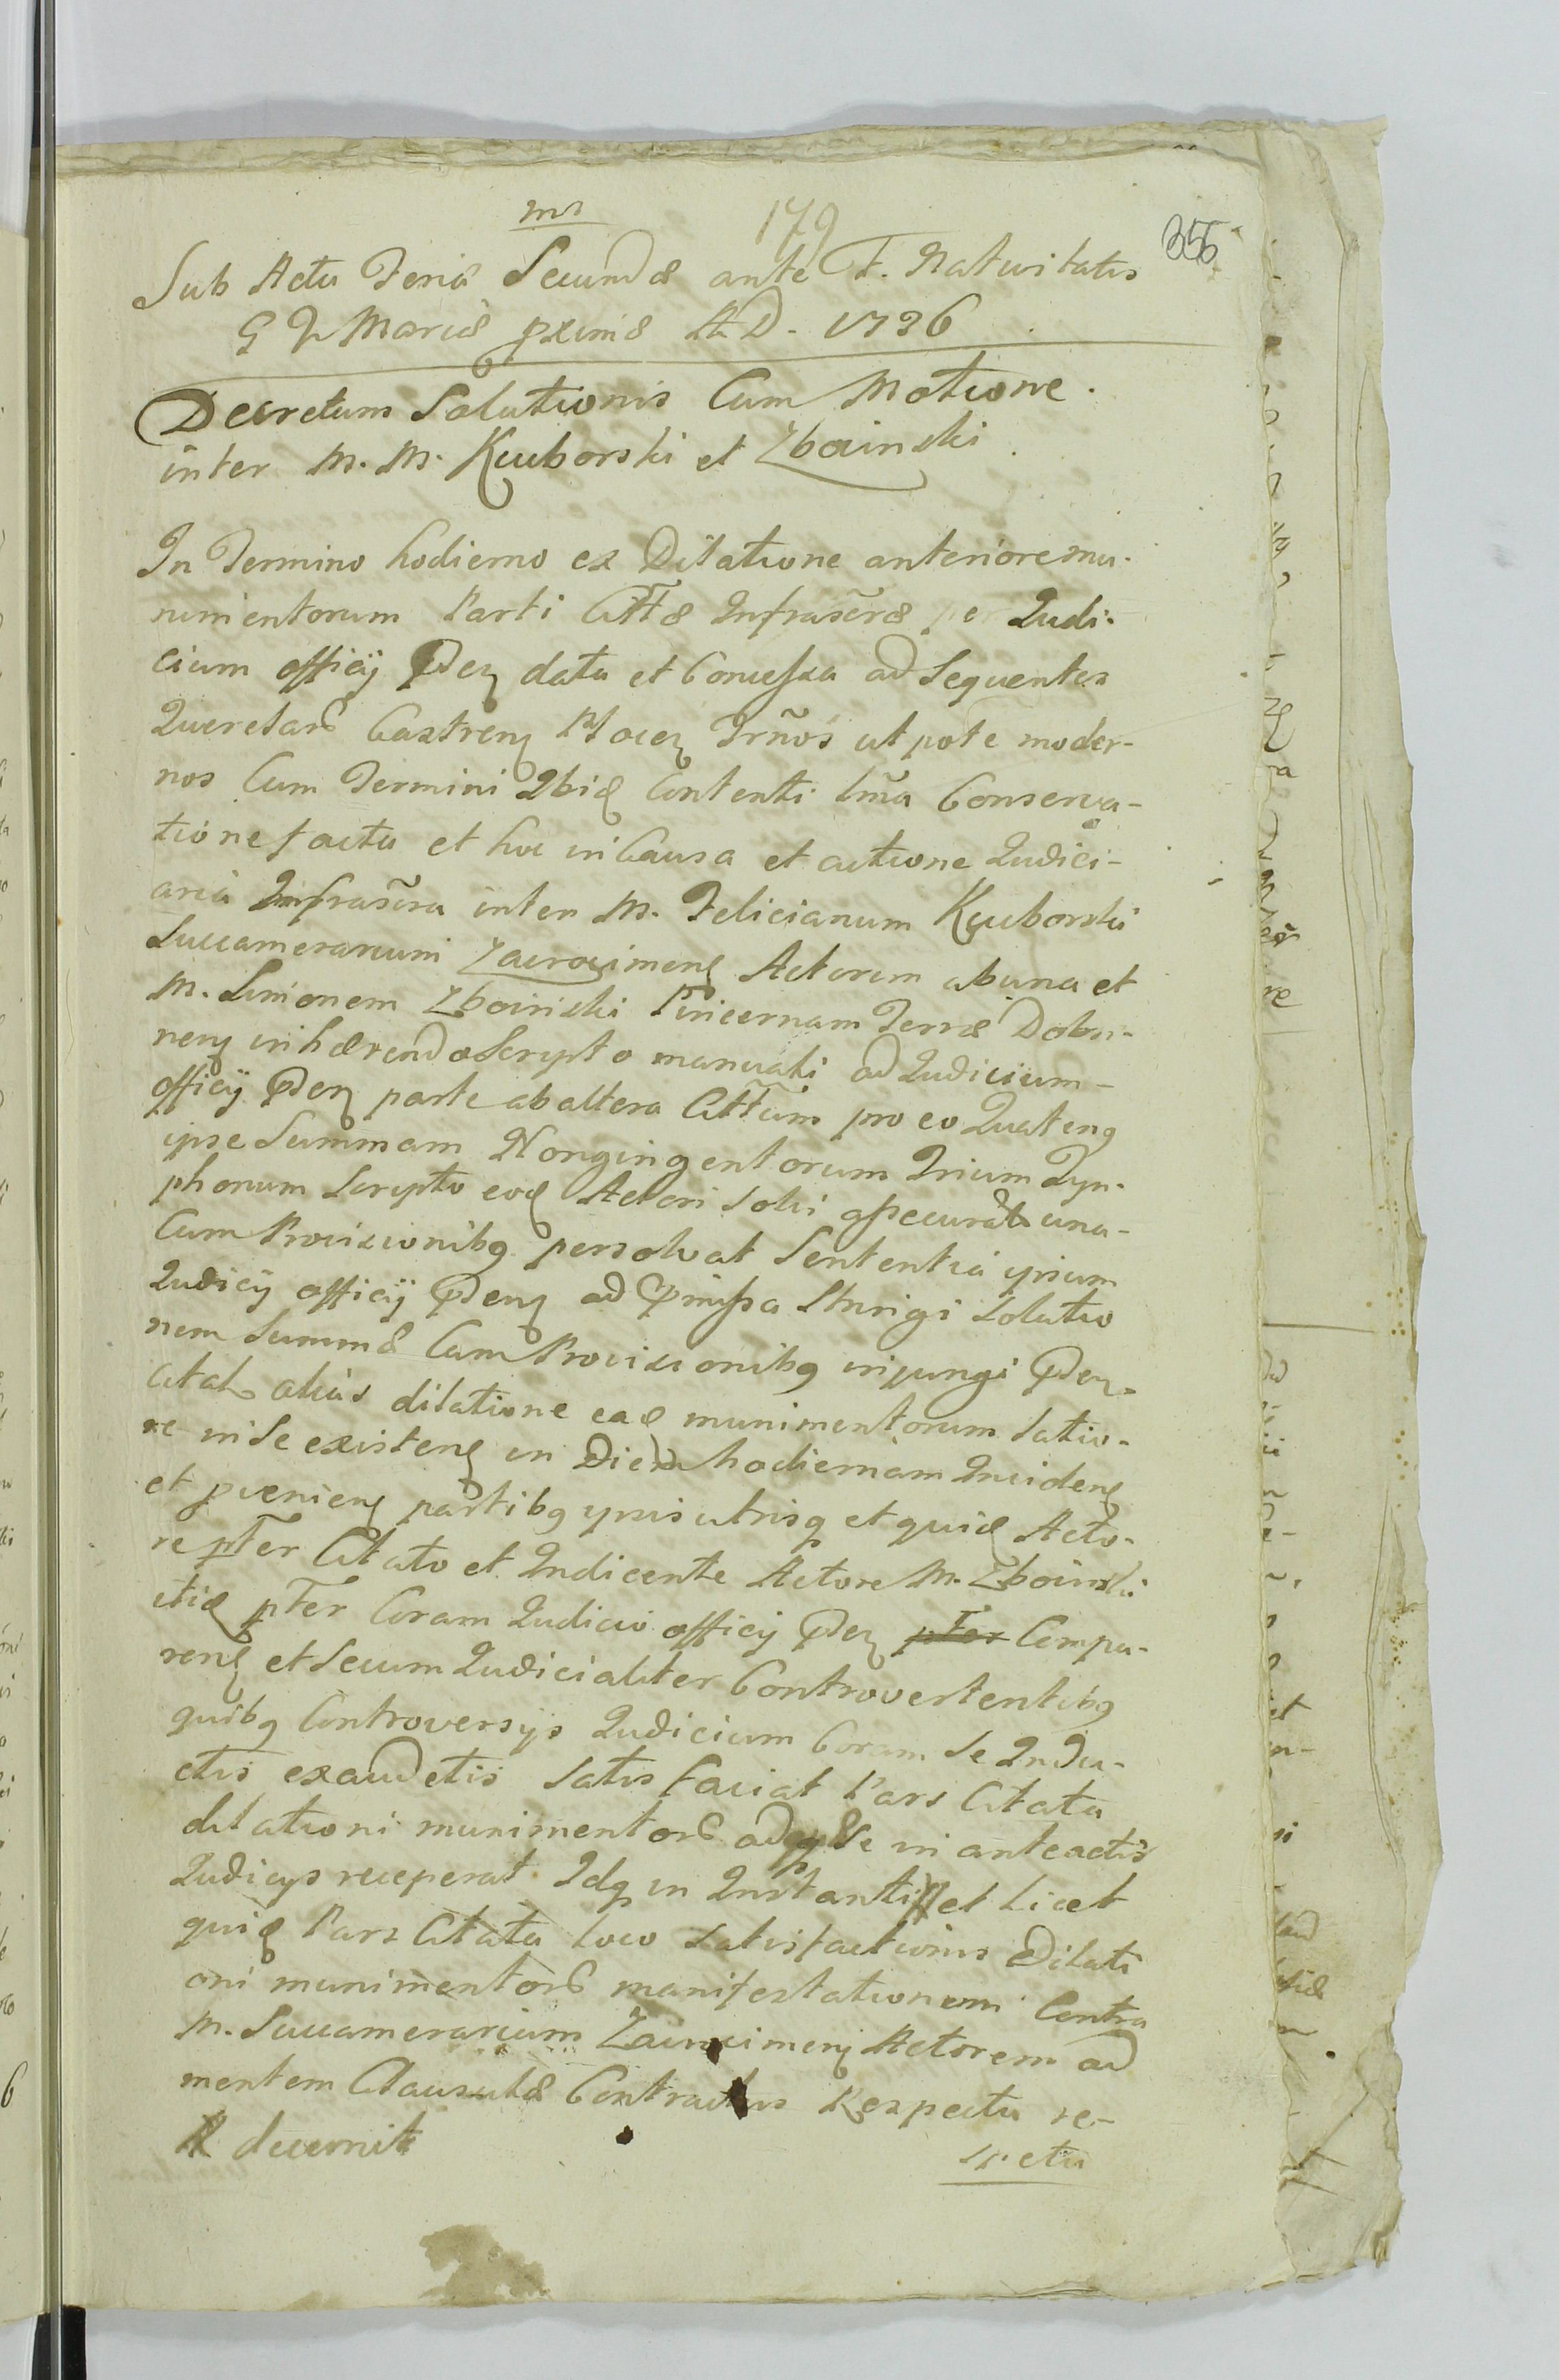 ms
179
356
Sub Actu Feria Secunda ante F. Nativitatis
Mariæ pximæ A D. 1736
Decretum Solutionis Cum Motione.
inter M. M. Kuiborski et Zboinski
In Termino hodierno ex Dilatione anteriore mu-
nimentorum Parti Cittæ Infrascræ per Judi-
cium officÿ data et Concessa ad Sequentes
Querelar Castren Plocen Trnos ut pote moder-
nos Cum Termini Ibid Contenti Conserva-
tione facta et hoc in Causa et actione Judici-
aria Infrascra inter M. Felicianum Kuiborski
Succamerarium Zacrocimens Actorem ab una et
M. Simonem Zboinski Pincernam Terræ Dobri-
nens inhærendo Scripto manuali ad Judicium
officÿ parte ab altera Cittum pro eo Quateng
ipse Summam Nongingentorum Trium Tyn-
phonum Scripto eod Actori Solvi assecurat una
Cum Provisionibg persolvat Sententia ipsum
Judicÿ officÿ ad pmissa Stringi Solutio
nem Summæ Cum Provisionibg injungi
Citat alias dilatione ead munimentorum Satio-
ne in Se existens in Diem hodiernam Incidens
et pveniens partibg ypsis utrisq et quid Acto-
re pter Citato et Indicente Actore M. Zboinski
itid pter Coram Judicio officÿ pter Compa-
rens et Secum Judicialiter Controvertentibg
quibg Controversÿs Judicium Coram Se Indu-
ctis exaudetis Satis faciat Pars Citata
dilationi munimentor ad Se in anteactis
Judicÿs receperat Idq in Instanti et licet
quid Pars Citata loco Satisfactionis Dilati
oni munimentor manifestationem Contra
M. Succamerarium Zacrocimens Actorem ad
mentem Clausulæ Contractus Respectu re-
decernit
spectu